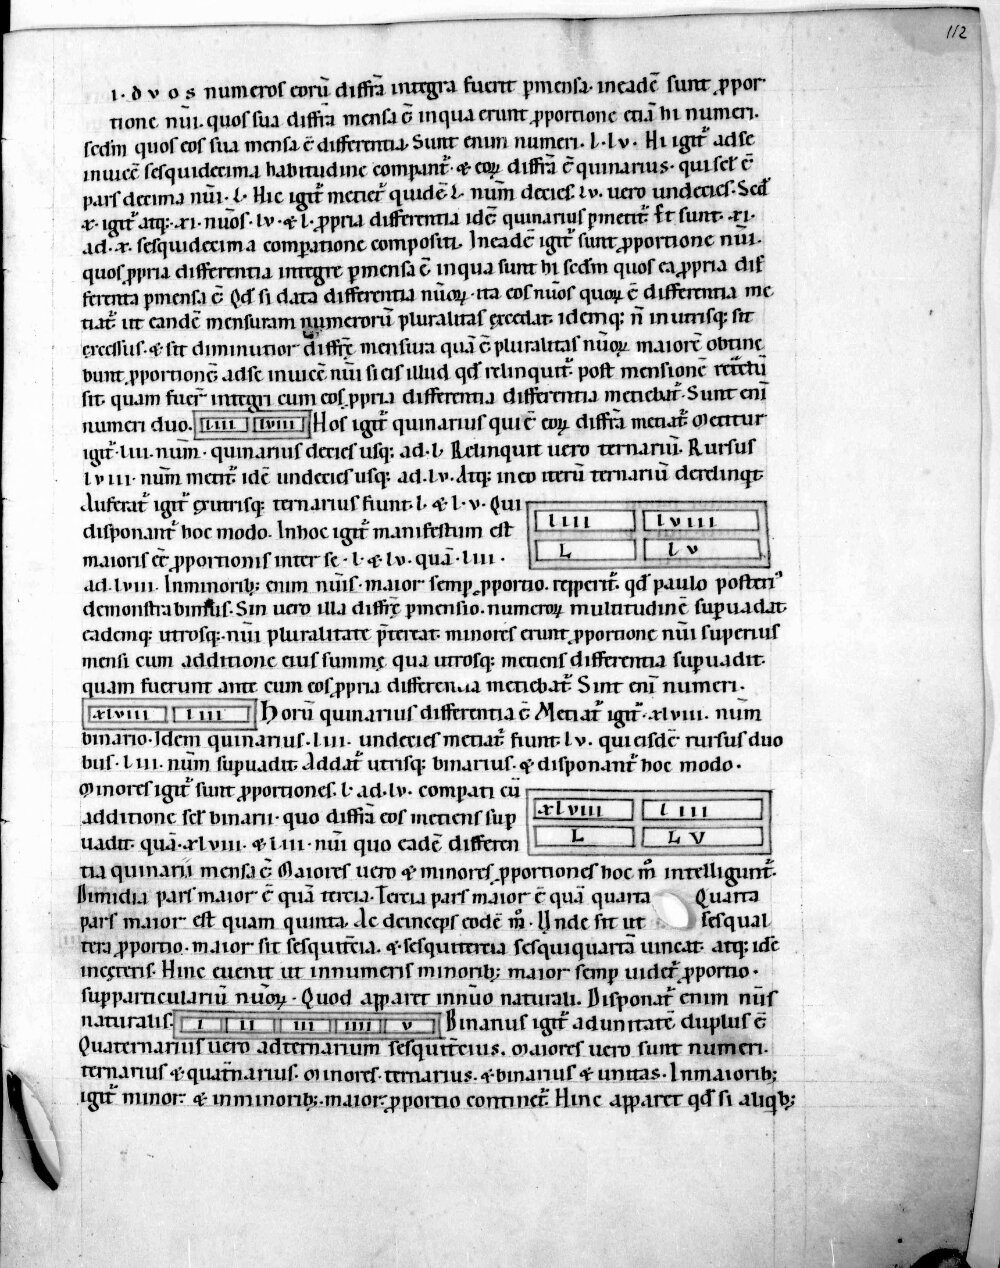 112
I· D V O S numeros eorū diffr̄a integra fuerit p̱mensa· in eadē sunt ꝓpor
tione nūi· quos sua diffr̄a mensa ē in qua erunt ꝓportione etiā hi numeri·
scd̄m quos eos sua mensa ē differentia· Sunt enim numeri· l· lv· Hi igit᷑ ad se
inuicē sesquidecima habitudine comparant᷑· & eoꝝ diffr̄a ē quinarius· qui scł· ē
pars decima nūi· l· Hic igit᷑ metiet᷑ quidē l· nūm decies· lv· uero undecies· Scd̄
x· igit᷑ atq;· xi· nūos· lv· & l· ꝓpria differentia idē quinarius p̱metit᷑ & sunt· xi·
ad· x· sesquidecima comparatione compositi· In eadē igit᷑ sunt ꝓportione nūi·
quos ꝓpria differentia integre p̱mensa ē in qua sunt hi scd̄m quos ea ꝓpria dif
ferentia p̱mensa ē· Qđ si data differentia nūoꝝ· ita eos nūos quoꝝ ē differentia me
tiat᷑ ut eandē mensuram numerorū pluralitas excedat· idemq; n̄ in utrisq; sit
excessus· & sit diminutior diffrę mensura quā ē pluralitas nūoꝝ maiorē obtine
bunt ꝓportionē ad se inuicē nūi si eis illud qđ relinquit᷑ post mensionē
sit· quam fuer̄ integri cum eos ꝓpria differentia differentia metiebat᷑· Sunt enī
numeri duo· liii lviii Hos igit᷑ quinarius qui ē eoꝝ diffr̄a metiat᷑· Metitur
igit᷑· liii· nūm· quinarius decies usq; ad· l· Relinquit uero ternariū· Rursus
lviii· nūm metit᷑ idē undecies usq; ad· lv· Atq; in eo iterū ternariū derelinqt·
Auferat᷑ igit᷑ ex utrisq; ternarius fiunt· l· & l·v· Qui
disponant᷑ hoc modo· In hoc igit᷑ manifestum est
maioris eē ꝓportionis inter se· l· & lv· quā· liii·
liii lviii
L l v
ad· lviii· In minorib; enim nūis· maior semp̱ ꝓportio· repperit᷑· qđ paulo posteri᷒
demonstrabimus· Sin uero illa diffrę p̱mensio· numeroꝝ multitudinē sup̱uadat·
eademq; utrosq;· nūi pluralitate p̄tereat· minores erunt ꝓportione nūi superius
mensi cum additione eius summę qua utrosq; metiens differentia sup̱uadit·
quam fuerunt ante cum eos ꝓpria differentia metiebat᷑· Sint enī numeri·
xlviii liii Horū quinarius differentia ē Metiat᷑ igit᷑· xlviii· nūm
binario· Idem quinarius· liii· undecies metiat᷑ fiunt· lv· qui eisdē rursus duo
bus· liii· nūm sup̱uadit· Addat᷑ utrisq; binarius· & disponant᷑ hoc modo·
Minores igit᷑ sunt ꝓportiones· l· ad· lv· comparati cū
additione scł· binarii· quo diffr̄a eos metiens sup̱
uadit· quā· xlviii· & liii· nūi quo eadē differen
xlviii liii
L L V
tia quinarii mensa ē Maiores uero & minores ꝓportiones hoc m̊ intelligunt᷑·
Dimidia pars maior ē quā tercia· Tercia pars maior ē quā quarta Quarta
pars maior est quam quinta· Ac deinceps eodē m̊· Unde fit ut sesqual
tera ꝓportio· maior sit sesquit̄cia· & sesquitercia sesquiquartā uincat· atq; idē
in cęteris· Hinc euenit ut in numeris minorib; maior semp̱ uidet᷑ ꝓportio·
supparticulariū nūoꝝ· Quod apparet in nūo naturali· Disponat᷑ enim nūs
naturalis· i ii iii iiii v Binarius igit᷑ ad unitatē duplus ē
Quaternarius uero ad ternarium sesquit̄cius· Maiores uero sunt numeri·
ternarius & quat̄narius· Minores· ternarius· & binarius & unitas· In maiorib;
igit᷑ minor· & in minorib;· maior· ꝓportio continet᷑ Hinc apparet qđ si aliqb;